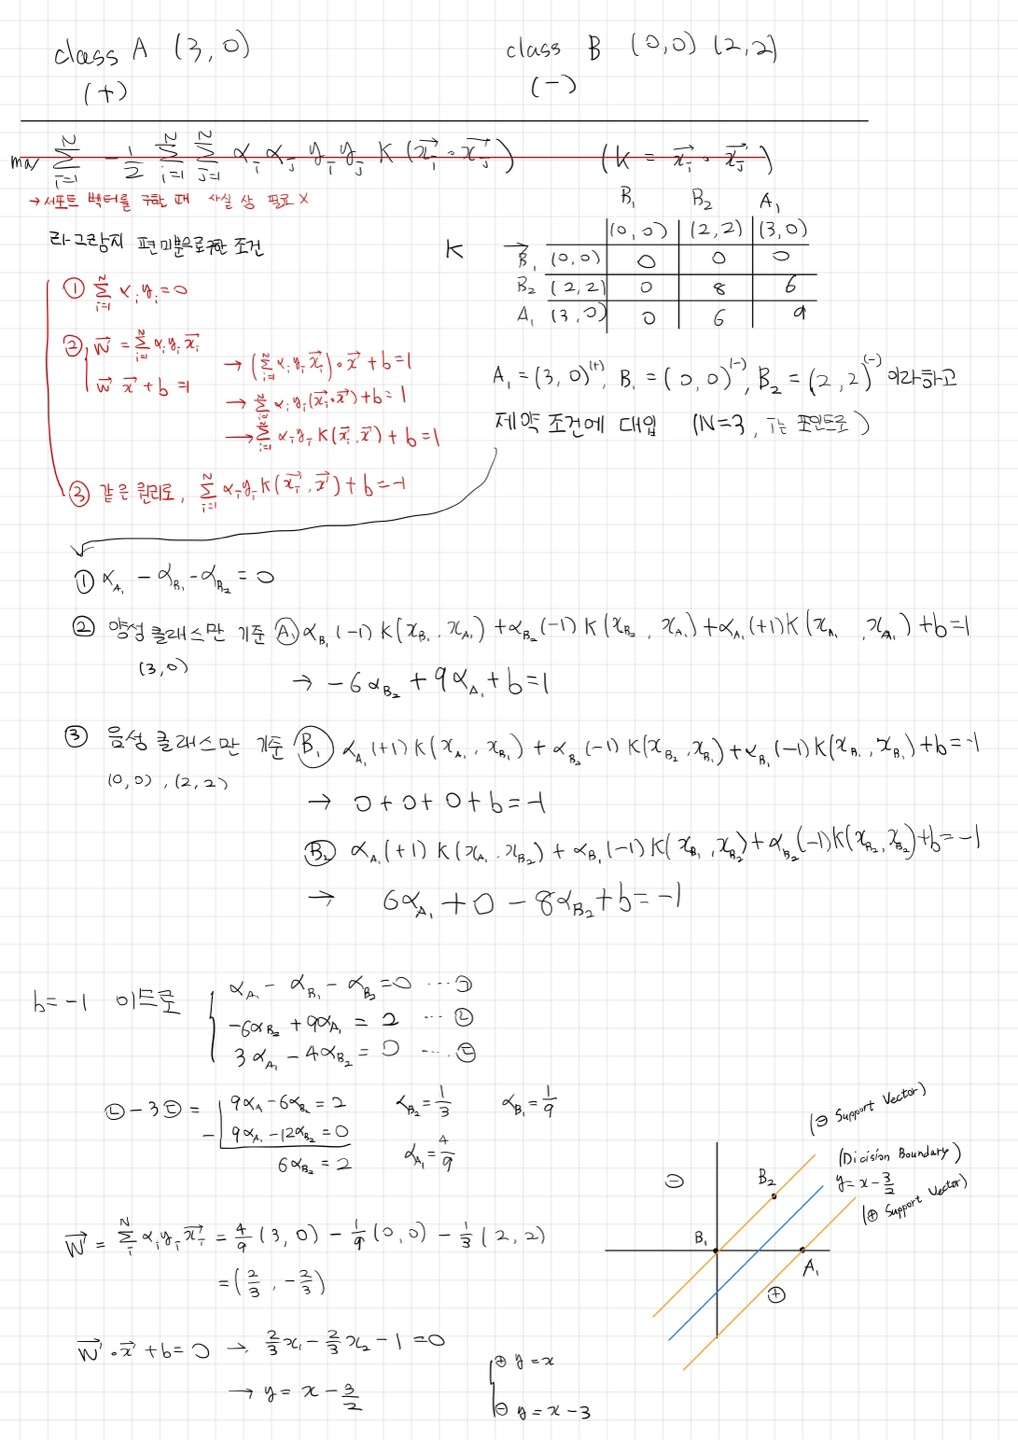 class A (3,0)
(+)
class B (0,0) (2,2)
(-)
max Σ_{i=1}^{N} -1/2 Σ_{i=1}^{N} Σ_{j=1}^{N} α_i α_j y_i y_j K (x_i→ · x_j→) (K = x_i→ · x_j→)
→ 서포트 벡터를 구할 때 사실 상 필요 X
라그랑지 편미분으로 구한 조건
① Σ_{i=1}^{N} α_i y_i = 0
② w→ = Σ_{i=1}^{N} α_i y_i x_i→
w→ x→ + b = 1
→ (Σ_{i=1}^{N} α_i y_i x_i→) · x→ + b = 1
→ Σ_{i=1}^{N} α_i y_i (x_i→ · x→) + b = 1
→ Σ_{i=1}^{N} α_i y_i K(x_i→, x→) + b = 1
③ 같은 원리로, Σ_{i=1}^{N} α_i y_i K(x_i→, x→) + b = -1
B₁ B₂ A₁
K → (0,0) (2,2) (3,0)
B₁ (0,0) 0 0 0
B₂ (2,2) 0 8 6
A₁ (3,0) 0 6 9
A₁ = (3,0)⁽⁺⁾, B₁ = (0,0)⁽⁻⁾, B₂ = (2,2)⁽⁻⁾ 이라하고
제약 조건에 대입 (N=3, i는 포인트로)
① α_A₁ - α_B₁ - α_B₂ = 0
② 양성 클래스만 기준 A₁ α_B₁(-1)K(x_B₁, x_A₁) + α_B₂(-1)K(x_B₂, x_A₁) + α_A₁(+1)K(x_A₁, x_A₁) + b = 1
(3,0)
→ -6α_B₂ + 9α_A₁ + b = 1
③ 음성 클래스만 기준 B₁ α_A₁(+1)K(x_A₁, x_B₁) + α_B₂(-1)K(x_B₂, x_B₁) + α_B₁(-1)K(x_B₁, x_B₁) + b = -1
(0,0), (2,2)
→ 0 + 0 + 0 + b = -1
B₂ α_A₁(+1)K(x_A₁, x_B₂) + α_B₁(-1)K(x_B₁, x_B₂) + α_B₂(-1)K(x_B₂, x_B₂) + b = -1
→ 6α_A₁ + 0 - 8α_B₂ + b = -1
b = -1 이므로
α_A₁ - α_B₁ - α_B₂ = 0 ··· ㉠
-6α_B₂ + 9α_A₁ = 2 ··· ㉡
3α_A₁ - 4α_B₂ = 0 ··· ㉢
㉡ - 3㉢ =
9α_A₁ - 6α_B₂ = 2
- 9α_A₁ - 12α_B₂ = 0
6α_B₂ = 2
α_B₂ = 1/3 α_B₁ = 1/9
α_A₁ = 4/9
w→ = Σ_{i}^{N} α_i y_i x_i→ = 4/9 (3,0) - 1/9 (0,0) - 1/3 (2,2)
= (2/3, -2/3)
w→ · x→ + b = 0 → 2/3 x₁ - 2/3 x₂ - 1 = 0
→ y = x - 3/2
⊕ y = x
⊖ y = x - 3
(⊖ Support Vector)
(Dicision Boundary)
y = x - 3/2
(⊕ Support Vector)
⊖
B₂
B₁
A₁
⊕